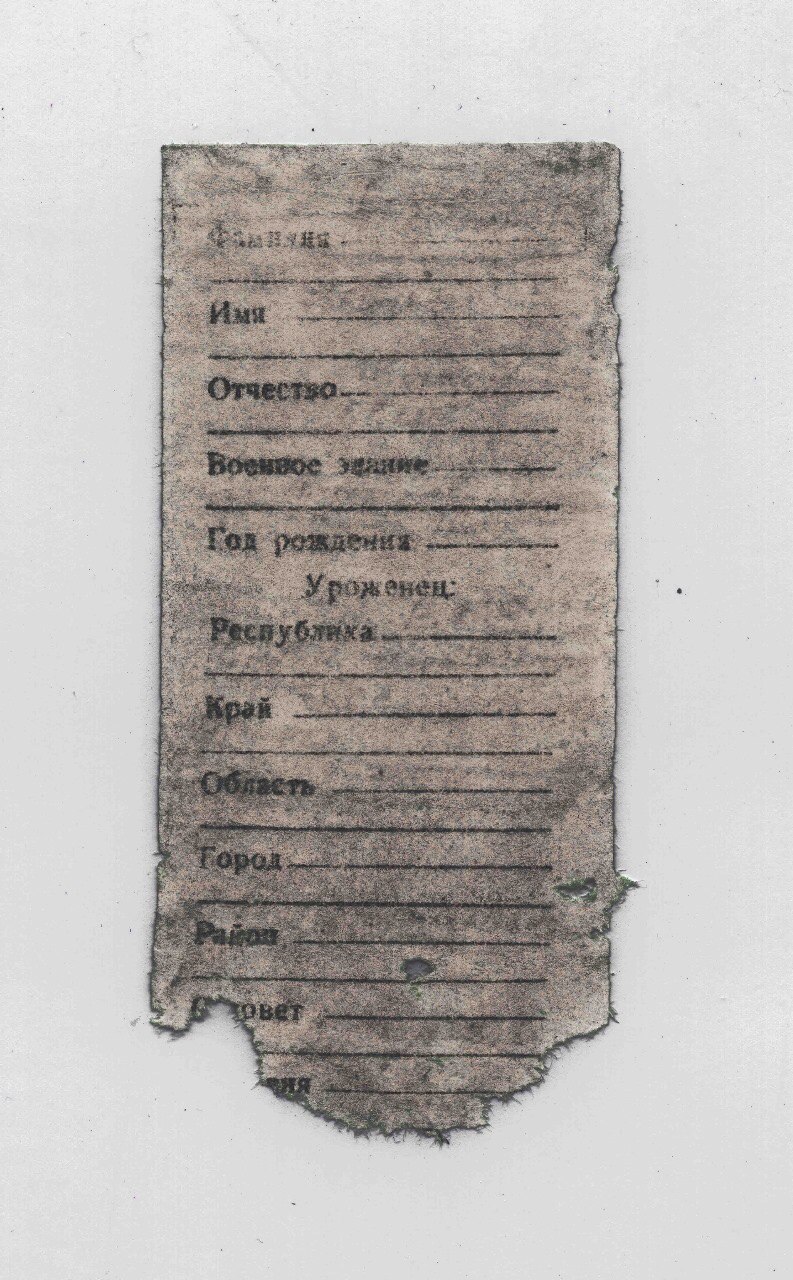 Фамилия
Имя
Отчество
Военное звание
Год рождения
Уроженец:
Республика
Край
Область
Город
Район